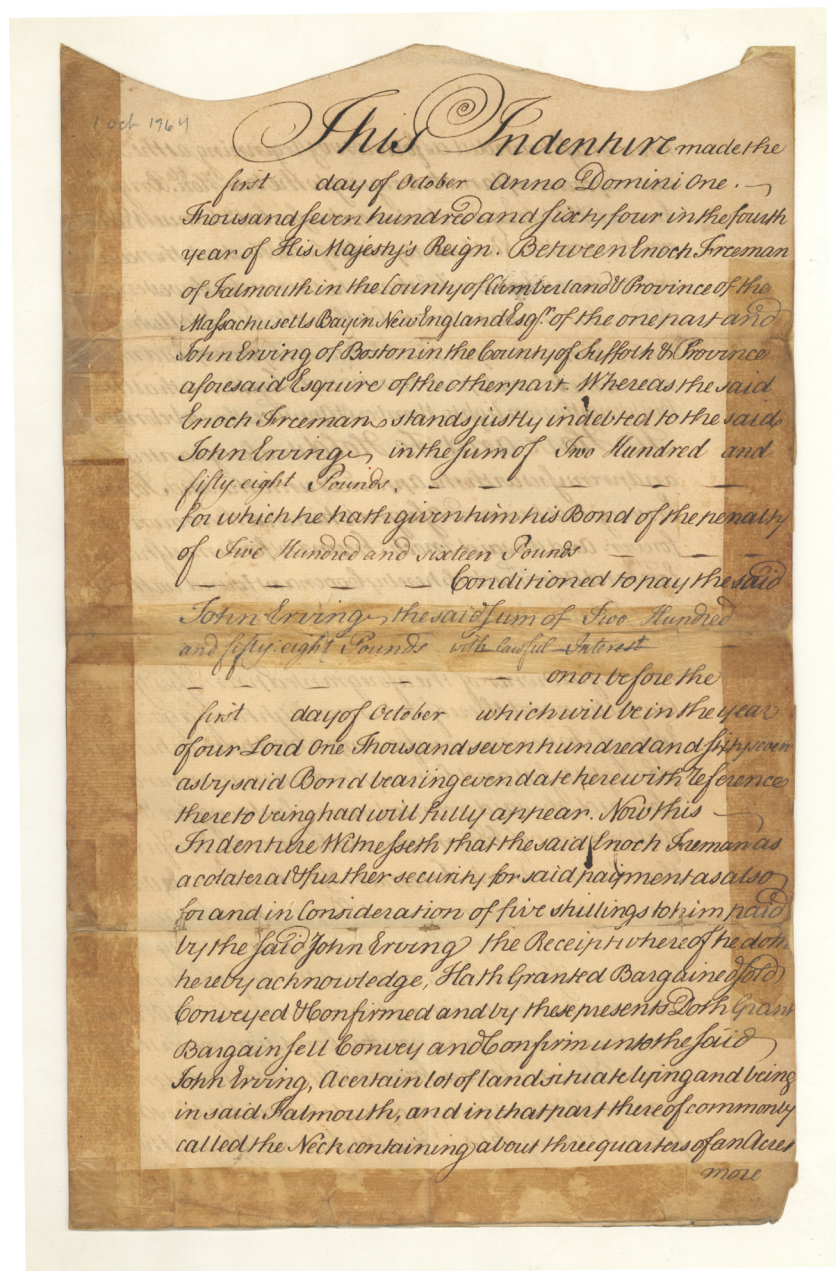 1 Oct 1764
This Indenture made the
first day of October Anno Domini One.
Thousand seven hundred and sixty four in the fourth
year of His Majesty's Reign. Between Enoch Freeman
of Falmouth in the County of Cumberland & Province of the
Massachusetts Bay in New England Esqr. of the one part and
John Erving of Boston in the County of Suffolk & Province
aforesaid Esquire of the other part Whereas the said
Enoch Freeman stands justly indebted to the said
John Erving in the Sum of Two Hundred and
fifty eight Pounds.
for which he hath given him his Bond of the penalty
of Five Hundred and sixteen Pounds
Conditioned to pay the said
John Erving the said sum of Two Hundred
and fifty eight Pounds with lawful Interest
on or before the
first day of October which will be in the year
of our Lord One Thousand seven hundred and sixty seven
as by said Bond bearing even date herewith reference
thereto being had will fully appear. Now this
Indenture Witnesseth that the said Enoch Freman as
a colateral & further security for said payment as also
for and in Consideration of five shillings to him paid
by the said John Erving the Receipt whereof he doth
hereby acknowledge, Hath Granted Bargained & sold
Conveyed & Confirmed and by these presents Doth Grant
Bargain sell Convey and Confirm unto the said
John Erving, A certain lot of land situate lying and being
in said Falmouth, and in that part thereof commonly
called the Neck containing about three quarters of an Acres
more